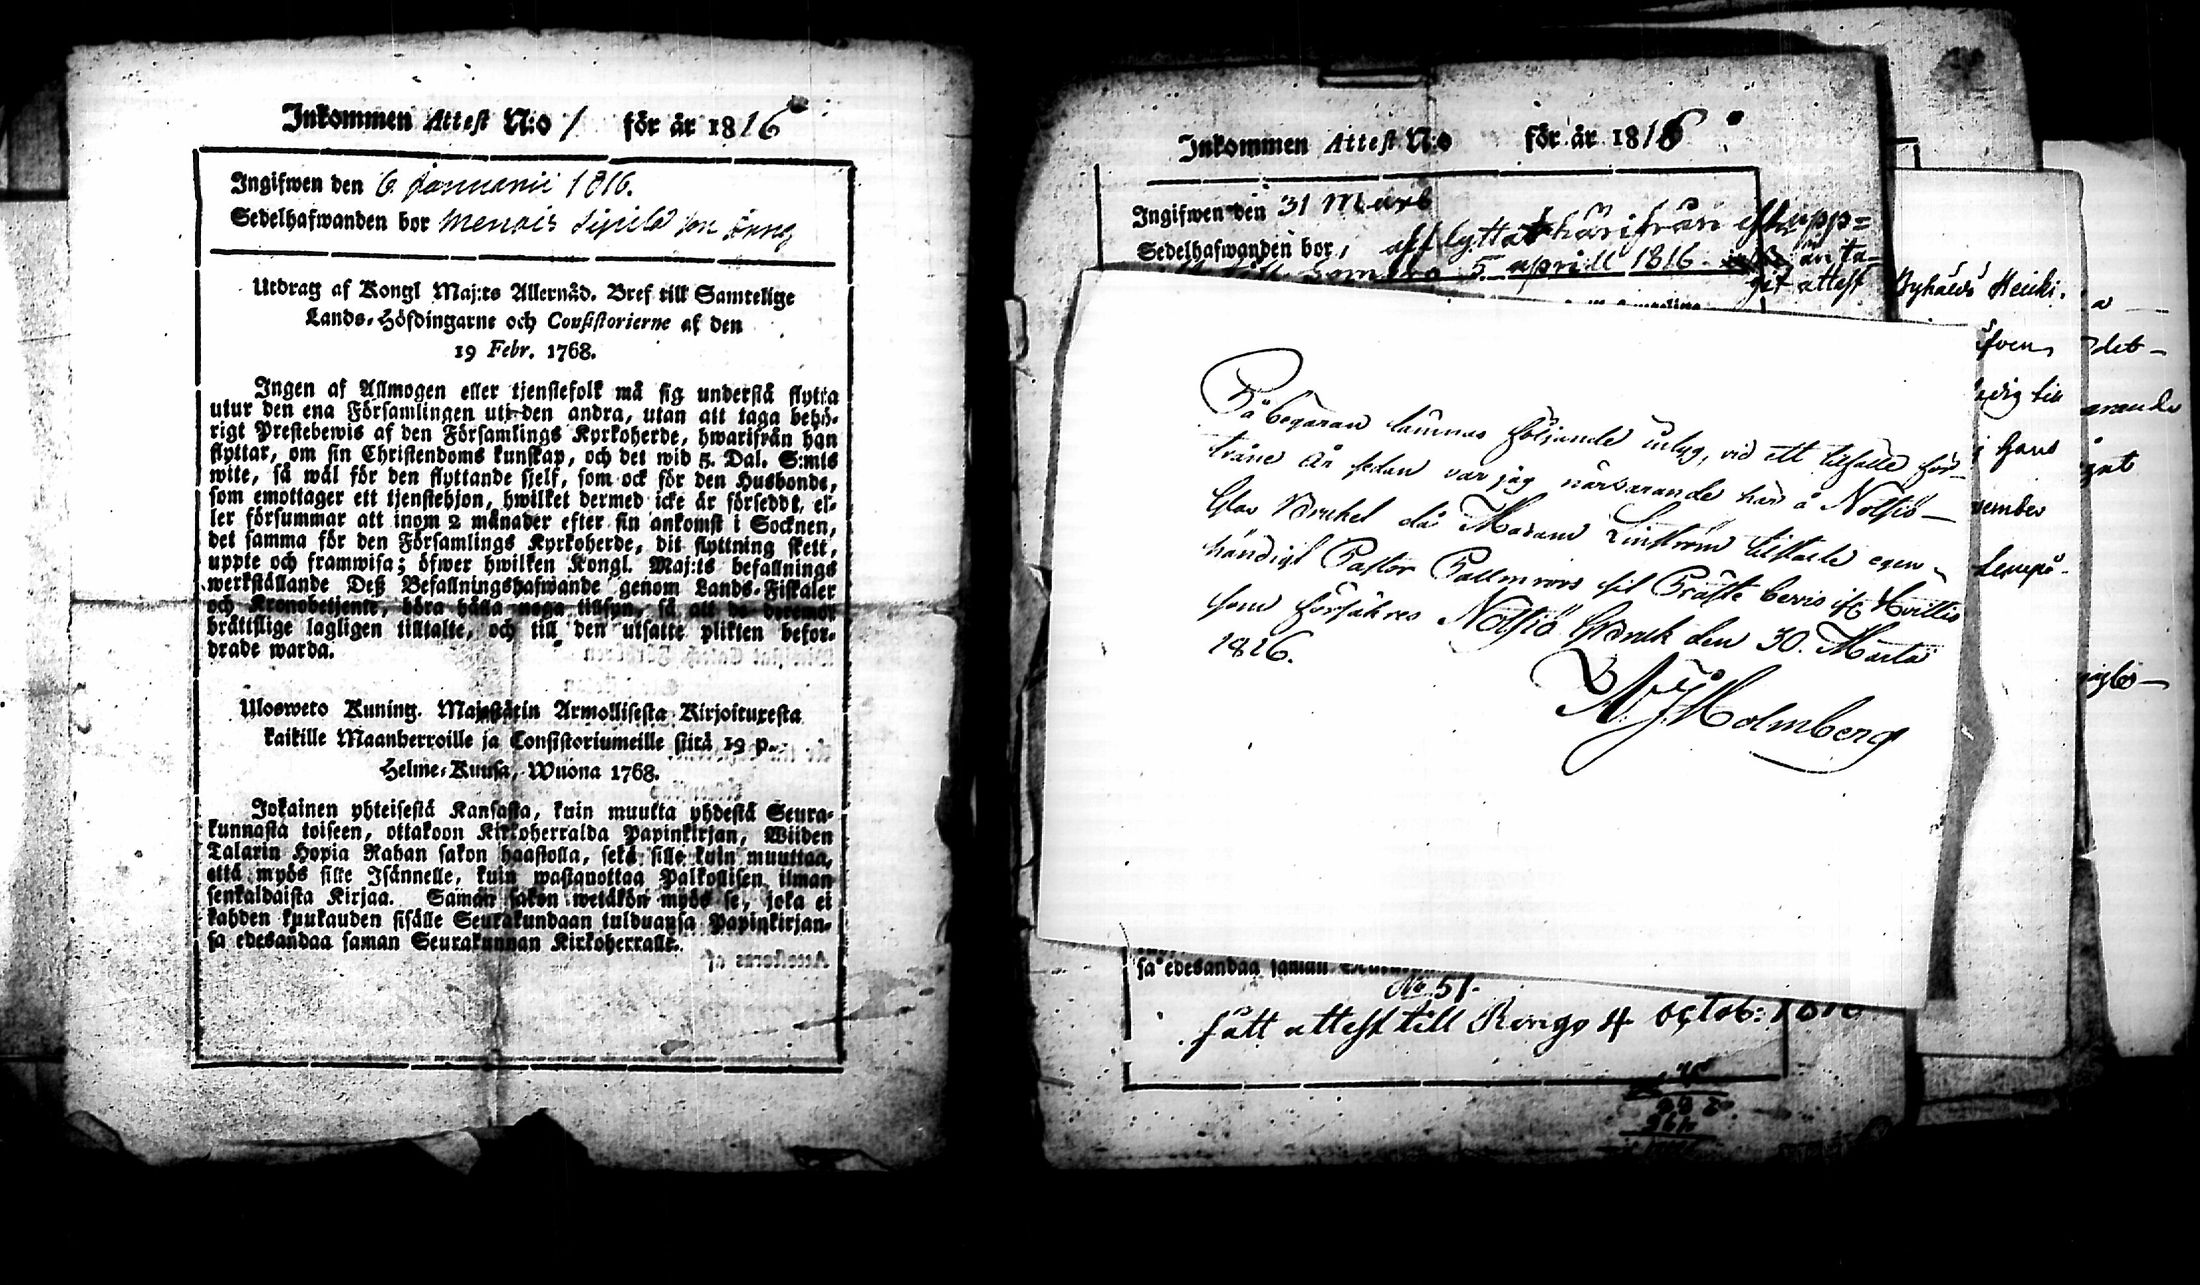 Inkommen Attest N:o 1 för år 1816
Ingifwen den 6 Januarii 1816.
Sedelhafwanden bor Menois Sipilä son
Utdrag af Kongl Maj:ts Allernåd. Bref till Samtelige
Lands-Höfdingarne och Consistorierne af den
19 Febr. 1768.
Ingen af Allmogen eller tjenstefolk må sig understå flytta
utur den ena Församlingen uti den andra, utan att taga behö-
rigt Prestebewis af den Församlings Kyrkoherde, hwarifrån han
flyttar, om sin Christendoms kunskap, och det wid 5. Dal. S:mts
wite, så wäl för den flyttande sjelf, som ock för den Husbonde,
som emottager ett tjenstehjon, hwilket dermed icke är förseddt, el-
ler försummar att inom 2 månader efter sin ankomst i Socknen,
det samma för den Församlings Kyrkoherde, dit flyttning skett,
uppte och framwisa; öfwer hwilken Kongl. Maj:ts befallnings
werkställande Deß Befallningshafwande genom Lands-Fiskaler
och Kronobetjente, böra hålla noga tillsyn, så att de deremot
brättslige lagligen tilltalte, och till den utsatte plikten befor-
drade warda.
Ulosweto Kuning. Majestätin Armollisesta Kirjoituxesta
kaikille Maanherroille ja Consistoriumeille siitä 19 p.
Helme-Kuusa, Wuona 1768.
Jokainen yhteisestä Kansasta, kuin muutta yhdestä Seura-
kunnasta toiseen, ottakoon Kirkoherralda Papinkirjan, Wiiden
Talarin Hopia Rahan sakon haastolla, sekä sille kuin muuttaa,
että myös sille Isännelle, kuin wastanottaa Palkollisen ilman
senkaldaista Kirjaa. Saman sakon wetäkön myös se, joka ei
kahden kuukauden sisälle Seurakundaan tulduansa Papinkirjan-
sa edesandaa saman Seurakunnan Kirkoherralle.
Inkommen Attest N:o för år 1816
Ingifwen den 31 Mars
Sedelhafwanden bor, afflyttat härifrån efter upp=
5 aprill 1816. an ta=
git attest
På begäran lämnas följande intyg, vid ett tilfälle för-
träne år sedan var jag närvarande här å Notsiö
Glas Bruket då Madame Linström tilstälte egen-
händigt Pastor Pallmroos sit Präste bevis
som försäkres Notsiö Gbruk den 30. Martii
1816.
Holmberg
sa edesandaa saman
No 51.
fått attest till Rengo 4 octob: 1816
Heicki.
hans